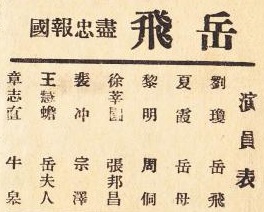 岳飛 盡忠報國
演員表
劉瓊 岳飛
夏霞 岳母
黎明 周侗
徐莘園 張邦昌
裴冲 宗澤
王慧蟾 岳夫人
章志直 牛皋